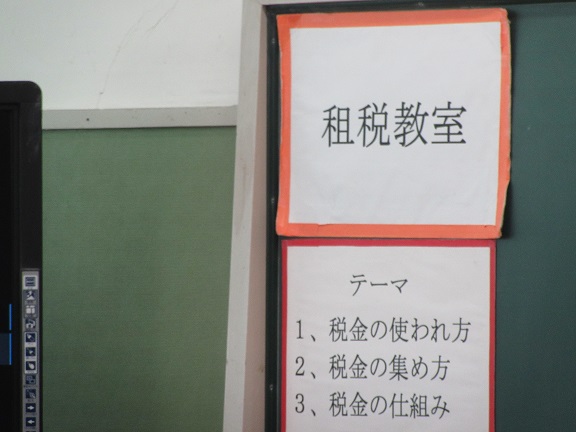 租税教室
テーマ
1、税金の使われ方
2、税金の集め方
3、税金の仕組み